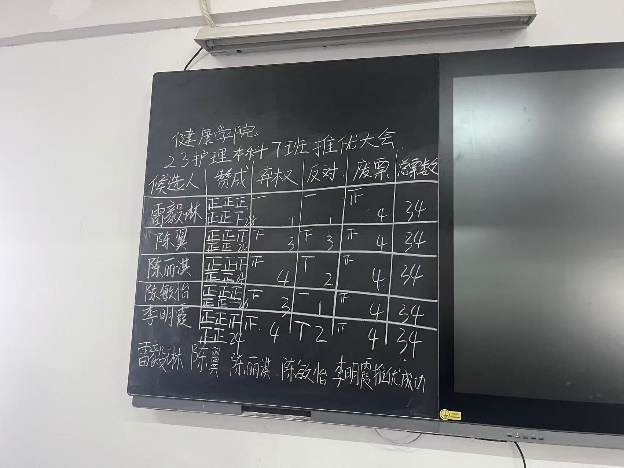 健康学院
23护理本科7班推优大会
候选人 赞成 弃权 反对 废票 总票数
雷毅琳 正正正正正下 1 1 4 34
陈翼 正正正正正 3 3 4 34
陈丽淇 正正正正正 4 2 4 34
陈敏怡 正正正正正 3 1 4 34
李明霞 正正正正正24 4 2 4 34
雷毅琳 陈翼 陈丽淇 陈敏怡 李明霞推优成功